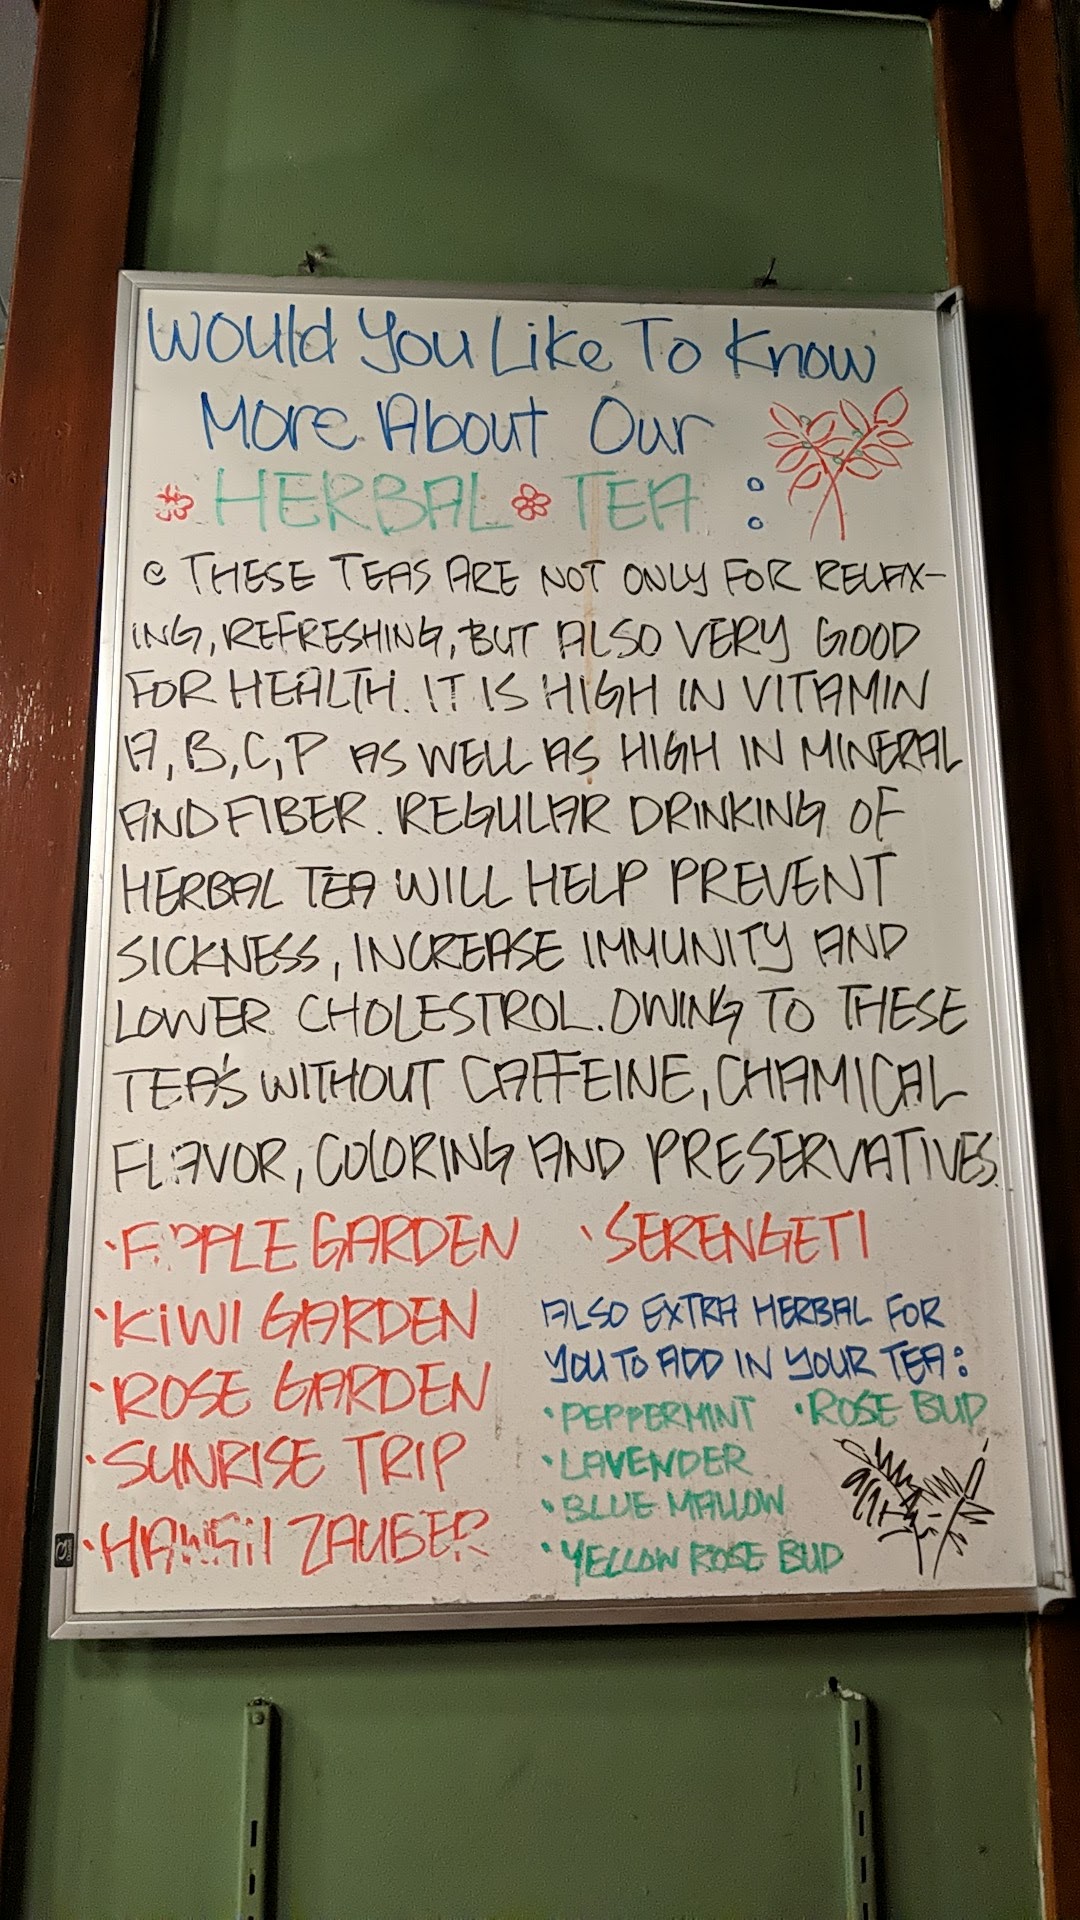 Would You Like To Know
More About Our
HERBAL TEA :
THESE TEAS ARE NOT ONLY FOR RELAX-
ING, REFRESHING, BUT ALSO VERY GOOD
FOR HEALTH. IT IS HIGH IN VITAMIN
A, B, C, P AS WELL AS HIGH IN MINERAL
AND FIBER. REGULAR DRINKING OF
HERBAL TEA WILL HELP PREVENT
SICKNESS, INCREASE IMMUNITY AND
LOWER CHOLESTROL. OWING TO THESE
TEA'S WITHOUT CAFFEINE, CHAMICAL
FLAVOR, COLORING AND PRESERVATIVES.
• APPLE GARDEN
• KIWI GARDEN
• ROSE GARDEN
• SUNRISE TRIP
• HAWAII ZAUBER
• SERENGETI
ALSO EXTRA HERBAL FOR
YOU TO ADD IN YOUR TEA:
• PEPPERMINT • ROSE BUD
• LAVENDER
• BLUE MALLOW
• YELLOW ROSE BUD